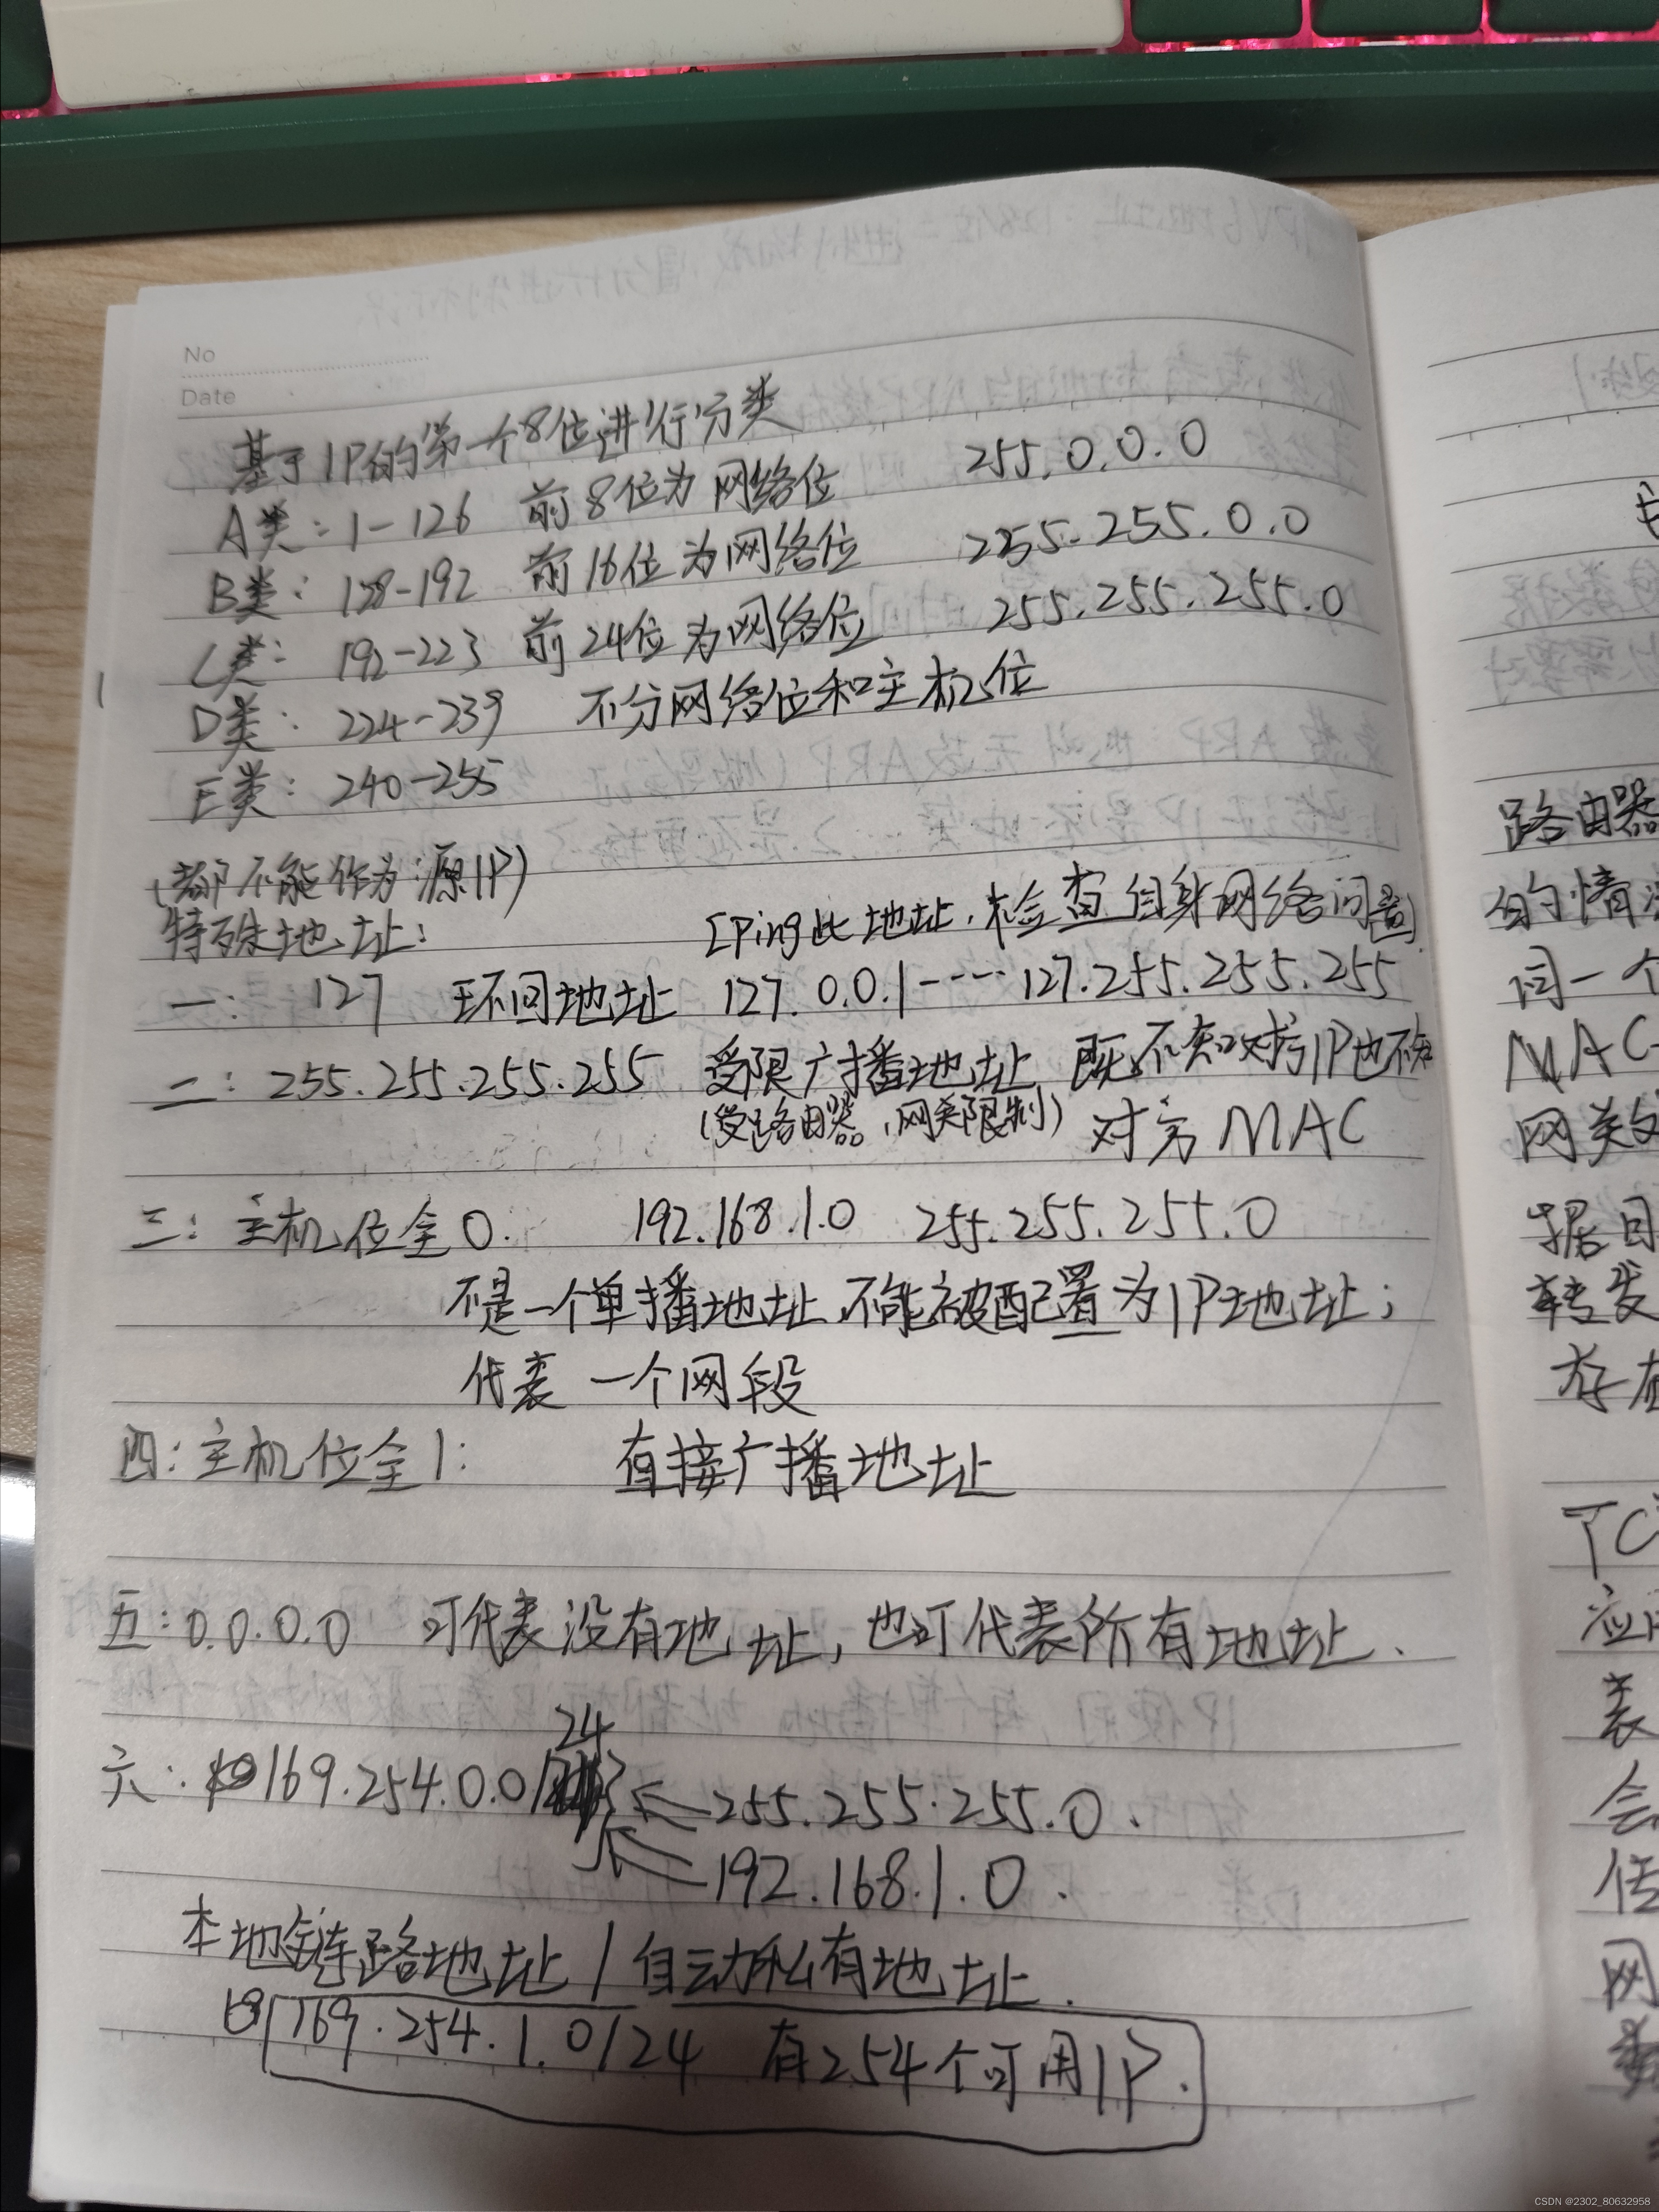 No
Date
基于IP的第一个8位进行分类
A类：1-126 前8位为网络位 255.0.0.0
B类：128-192 前16位为网络位 255.255.0.0
C类：192-223 前24位为网络位 255.255.255.0
D类：224-239 不分网络位和主机位
E类：240-255
(都不能作为源IP)
特殊地址： [Ping此地址，检查自身网络问题]
一： 127 环回地址 127.0.0.1----127.255.255.255
二：255.255.255.255 受限广播地址，既不知对方IP也不知
(受路由器，网关限制) 对方MAC
三：主机位全0. 192.168.1.0 255.255.255.0
不是一个单播地址，不能被配置为IP地址；
代表一个网段
四：主机位全1： 直接广播地址
五：0.0.0.0 可代表没有地址，也可代表所有地址.
24
六：169.254.0.0/ ←255.255.255.0.
←192.168.1.0.
本地链路地址/自动私有地址.
169.254.1.0/24 有254个可用IP.
路由器
的情
同一个
MAC
网关
据目
转发
存在
TC
应用
表
会
传
网
CSDN @2302_80632958